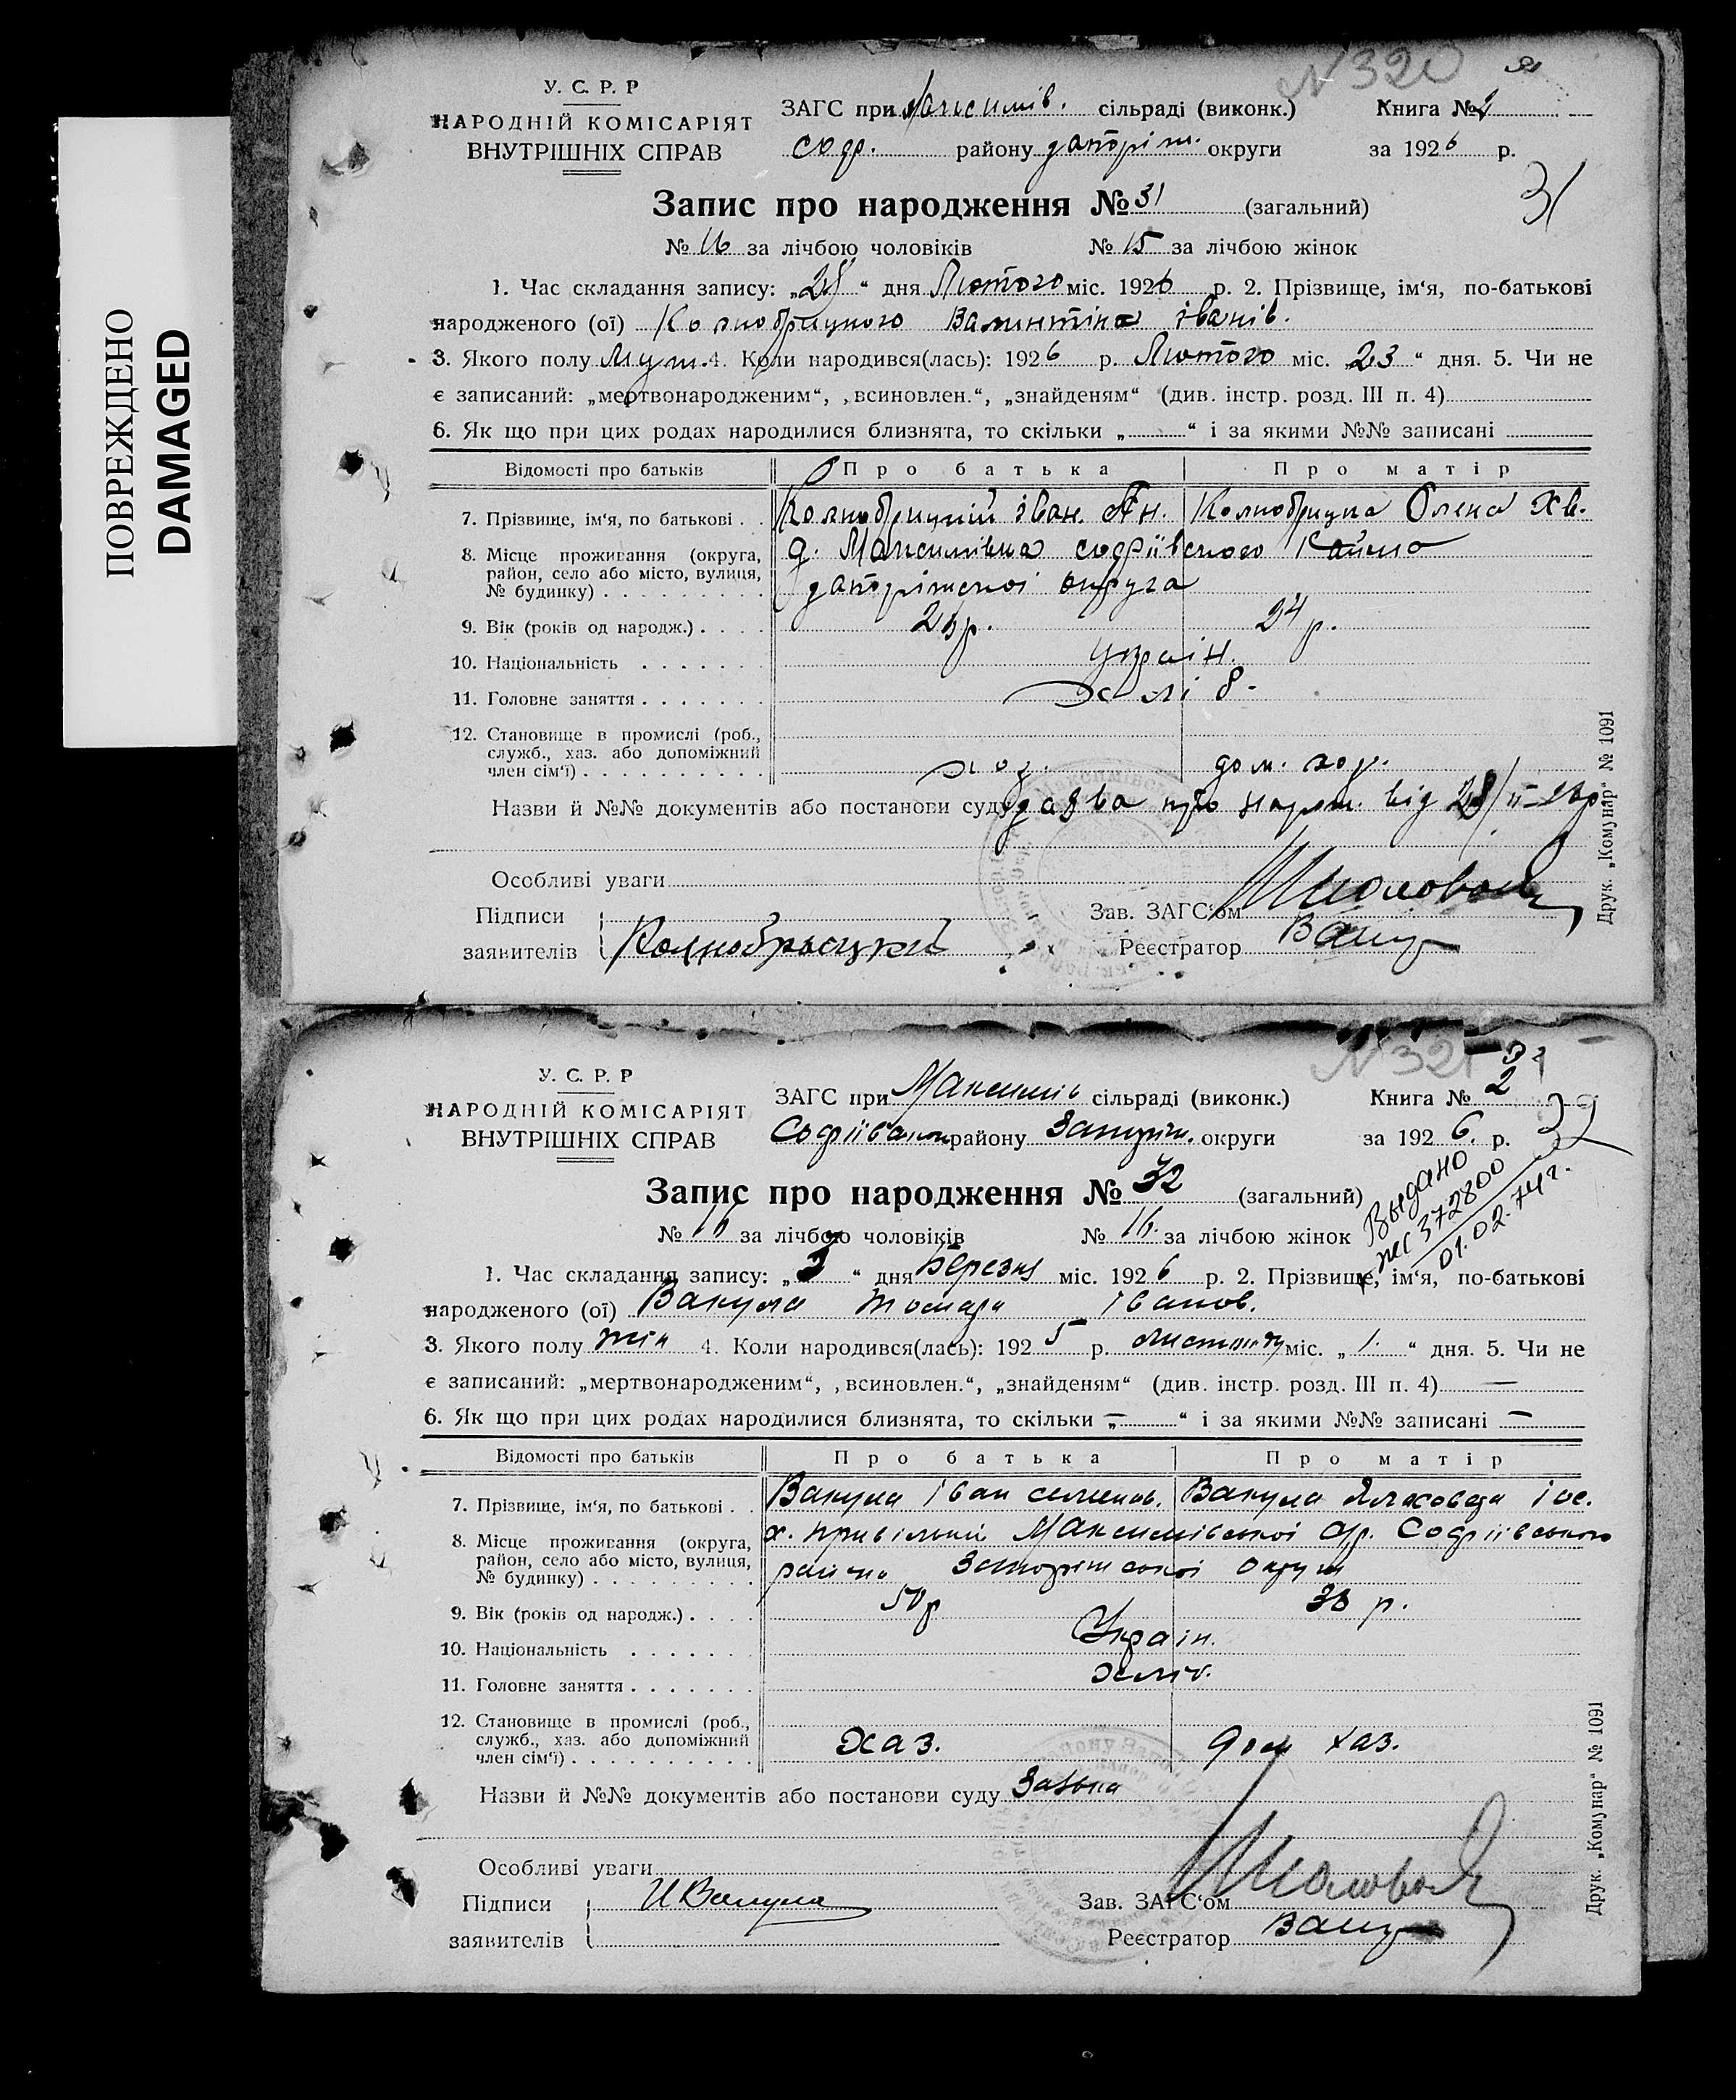 ПОВРЕЖДЕНО
DAMAGED
N 320
У. С. Р. Р
НАРОДНІЙ КОМІСАРІЯТ
ВНУТРІШНІХ СПРАВ
ЗАГС при Максимів. сільраді (виконк.) Книга № 2
соф. району запоріж. округи за 1926 р.
31
Запис про народження № 31 (загальний)
№ 16 за лічбою чоловіків № 15 за лічбою жінок
1. Час складання запису: „28“ дня Лютого міс. 1926 р. 2. Прізвище, ім‘я, по-батькові
народженого (ої) Валинтіна іванів.
3. Якого полу Муж. 4. Коли народився(лась): 1926 р. Лютого міс. „23“ дня. 5. Чи не
є записаний: „мертвонародженим“, „всиновлен.“, „знайденям“ (див. інстр. розд. III п. 4)
6. Як що при цих родах народилися близнята, то скільки „ “ і за якими №№ записані
Відомості про батьків Про батька Про матір
7. Прізвище, ім‘я, по батькові . . іван. Олена Хв.
8. Місце проживання (округа,
район, село або місто, вулиця,
№ будинку) . . . . . . . . .
Максимівка софіївского Району
запоріжскої округа
9. Вік (років од народж.) . . . . 24 р.
10. Національність . . . . . . . україн.
11. Головне заняття . . . . . . . хліб.
12. Становище в промислі (роб.,
служб., хаз. або допоміжний
член сім‘ї) . . . . . . . . . . хоз. дом. хоз.
Назви й №№ документів або постанови суду заява про нарож. від 28/II-26р
Особливі уваги
Підписи Зав. ЗАГС‘ом
заявителів Реєстратор
Друк. „Комунар“ № 1091
N 321
У. С. Р. Р
НАРОДНІЙ КОМІСАРІЯТ
ВНУТРІШНІХ СПРАВ
ЗАГС при Максимів сільраді (виконк.) Книга № 2
Софіївськ району Запоріж. округи за 1926. р.
32
Выдано
372800
01.02.74г.
Запис про народження № 32 (загальний)
№ 16 за лічбою чоловіків № 16. за лічбою жінок
1. Час складання запису: „3“ дня Березня міс. 1926 р. 2. Прізвище, ім‘я, по-батькові
народженого (ої) Вакула Іванов.
3. Якого полу жін 4. Коли народився(лась): 1925 р. листопад міс. „1.“ дня. 5. Чи не
є записаний: „мертвонародженим“, „всиновлен.“, „знайденям“ (див. інстр. розд. III п. 4) —
6. Як що при цих родах народилися близнята, то скільки „—“ і за якими №№ записані —
Відомості про батьків Про батька Про матір
7. Прізвище, ім‘я, по батькові . . Вакула Іван семенов. Вакула
8. Місце проживання (округа,
район, село або місто, вулиця,
№ будинку) . . . . . . . . .
х. привільний Максимівської с/р. Софіївського
району Запоріжської округи
9. Вік (років од народж.) . . . . 50 р 38 р.
10. Національність . . . . . . . Україн.
11. Головне заняття . . . . . . .
12. Становище в промислі (роб.,
служб., хаз. або допоміжний
член сім‘ї) . . . . . . . . . . хаз. дом хаз.
Назви й №№ документів або постанови суду Заявка
Особливі уваги
Підписи И Вакула Зав. ЗАГС‘ом
заявителів Реєстратор
Друк. „Комунар“ № 1091